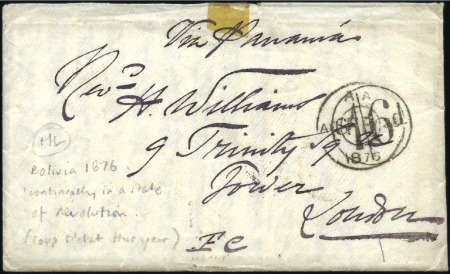 Via Panamá
Revd H. Williams
9 Trinity Sq
Tower
London
E C
1876
HL
Bolivia 1876.
"continually in a state
of revolution.
(coup D'etat this year)